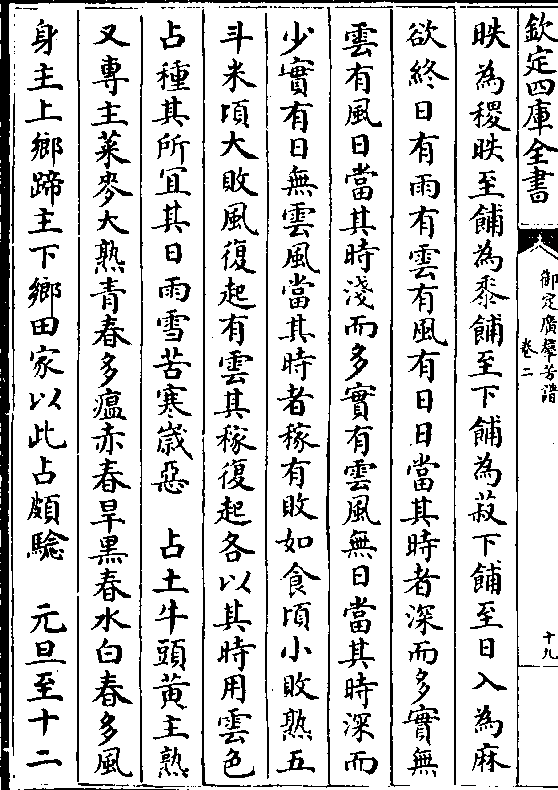 欽定四庫全書
御定廣羣芳譜
卷二
十九
昳為稷昳至餔為黍餔至下餔為菽下餔至日入為麻
欲終日有雨有雲有風有日日當其時者深而多實無
雲有風日當其時淺而多實有雲風無日當其時深而
少實有日無雲風當其時者稼有敗如食頃小敗熟五
斗米頃大敗風復起有雲其稼復起各以其時用雲色
占種其所宜其日雨雪苦寒歲惡　占土牛頭黄主熟
又專主菜麥大熟青春多瘟赤春旱黑春水白春多風
身主上鄉蹄主下鄉田家以此占頗驗　元旦至十二